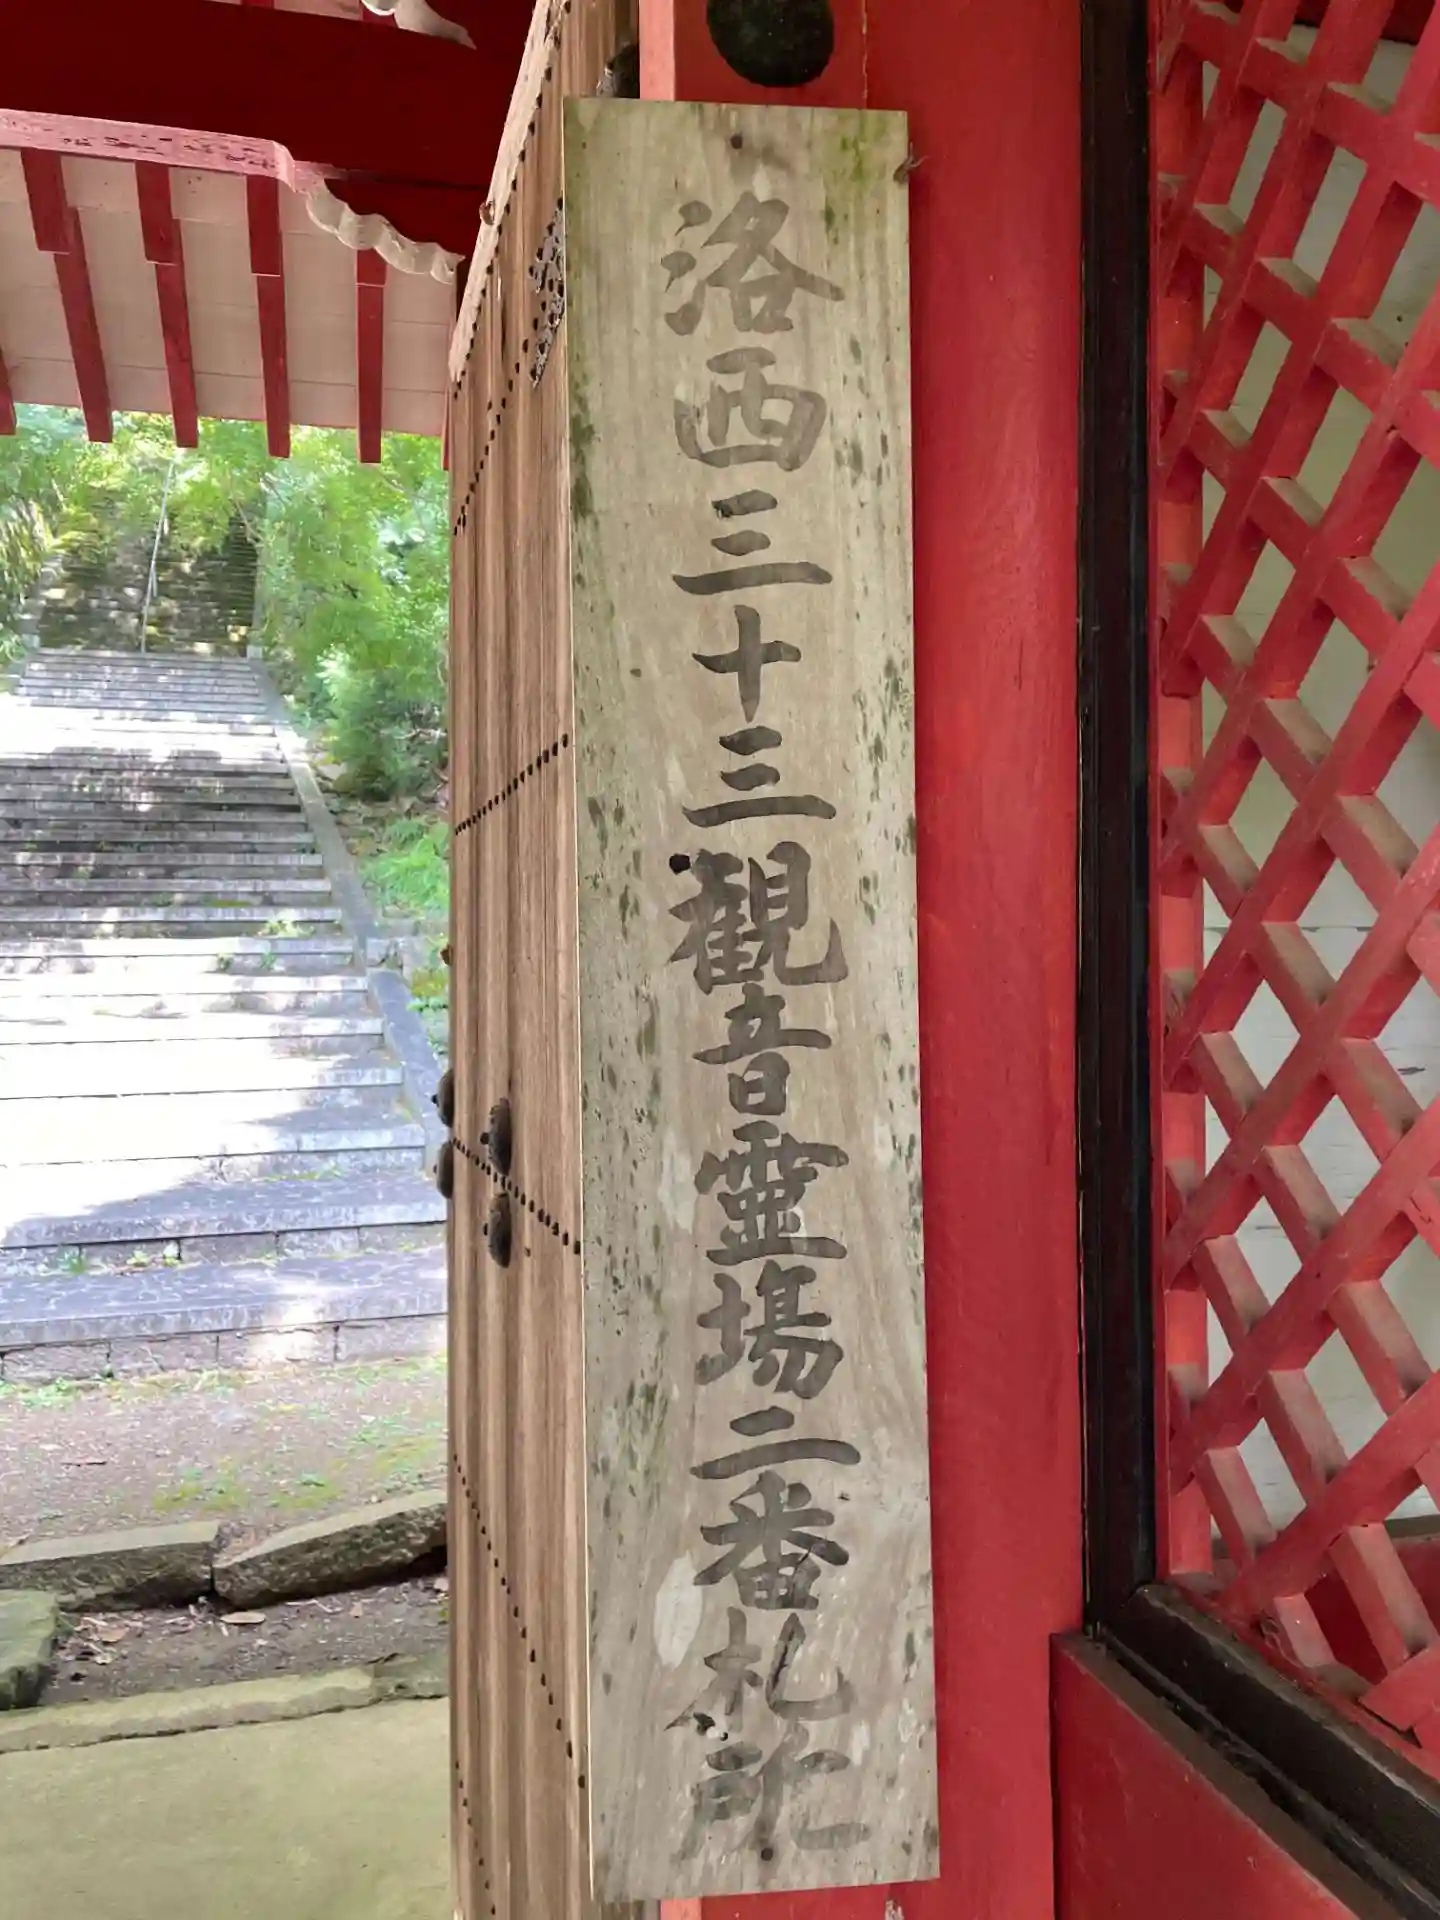 洛西三十三観音霊場二番札所